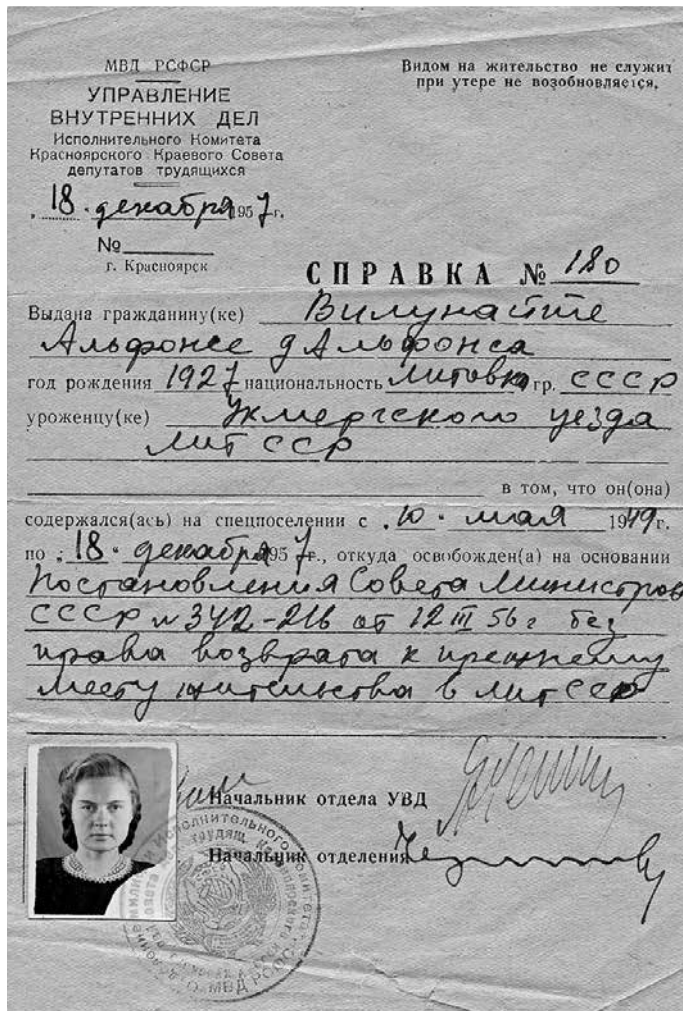 МВД РСФСР
УПРАВЛЕНИЕ
ВНУТРЕННИХ ДЕЛ
Исполнительного Комитета
Красноярского Краевого Совета
депутатов трудящихся
18 · декабря 1957г.
№
г. Красноярск
Видом на жительство не служит
при утере не возобновляется.
СПРАВКА № 180
Выдана гражданину(ке) Вилунайте
Альфонсе д Альфонса
год рождения 1927 национальность литовка гр. СССР
уроженцу(ке) Укмергского уезда
лит ССР
в том, что он(она)
содержался(ась) на спецпоселении с „10 · мая 1949г.
по „18 · декабря 1957г., откуда освобожден(а) на основании
Постановления Совета Министров
СССР № 342-216 от 12 III 56 г без
права возврата к прежнему
месту жительства в лит ССР
Начальник отдела УВД
Начальник отделения